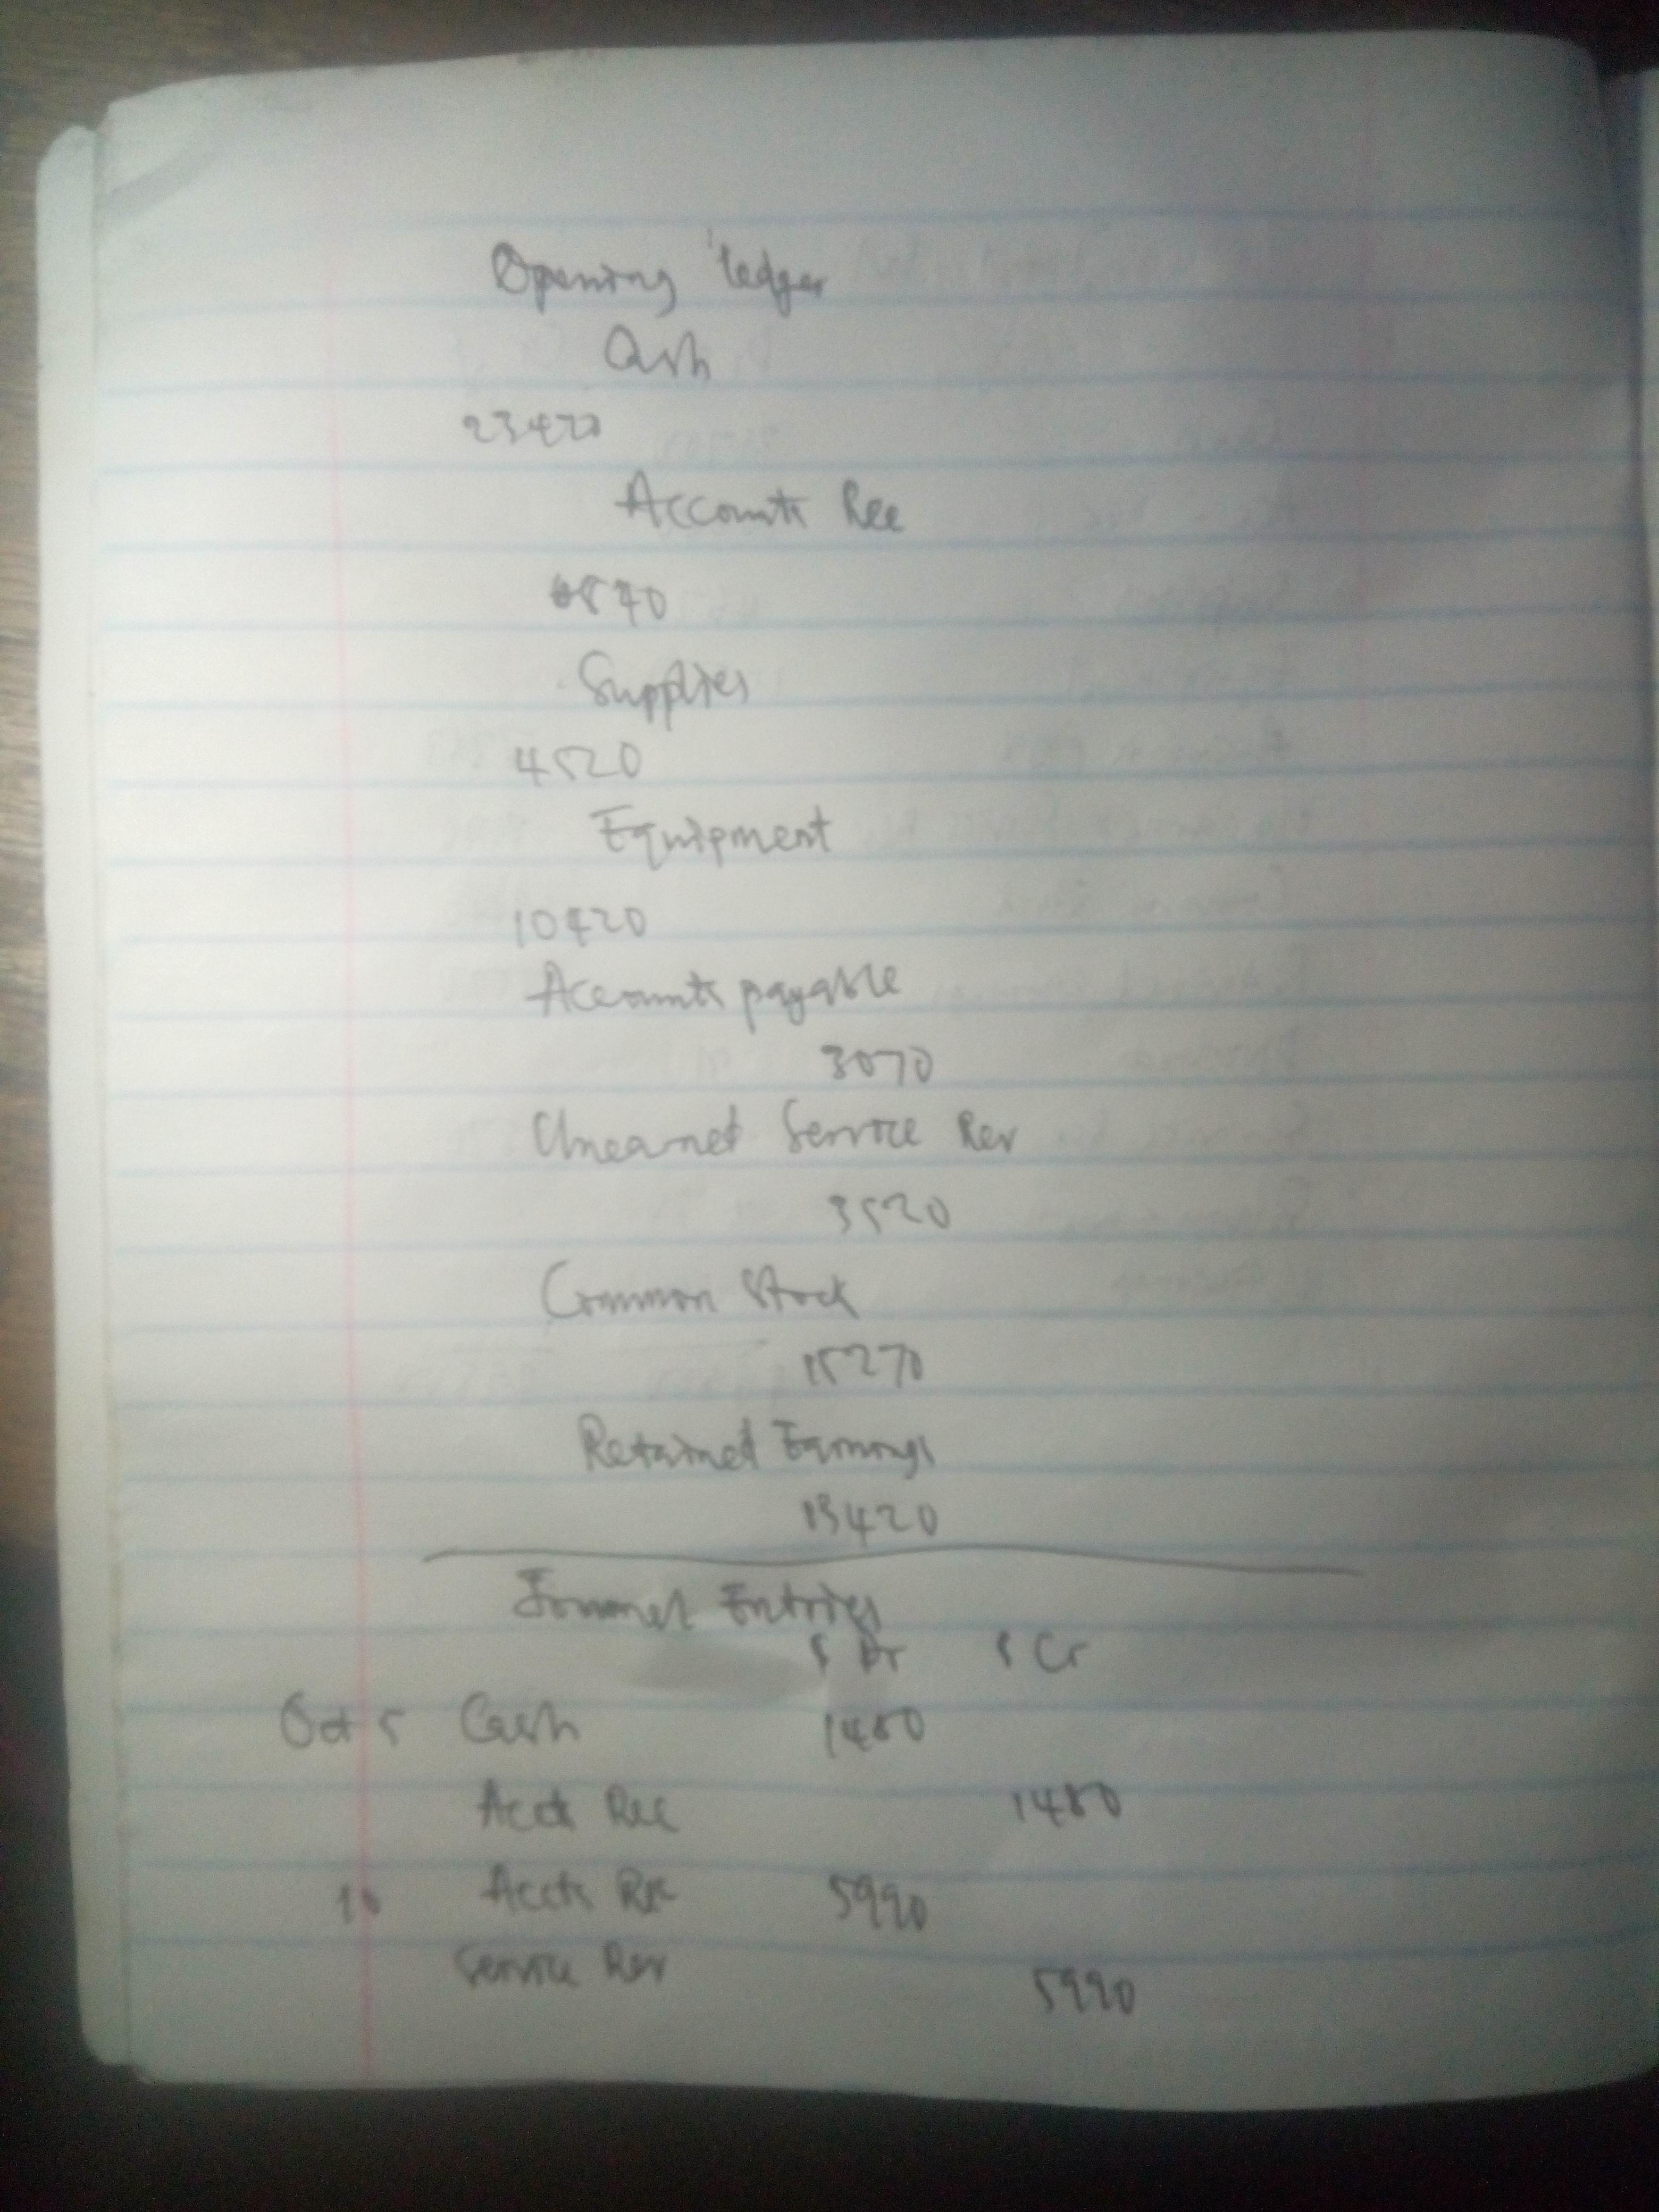 Opening ledger
Cash
23420
Accounts Rec
6840
Supplies
4520
Equipment
10420
Accounts payable
3070
Unearned Service Rev
3520
Common Stock
15270
Retained Earnings
13420
Journal Entries
$ Dr $ Cr
Oct 5 Cash 1480
Accts Rec 1480
10 Accts Rec 5990
Service Rev 5990